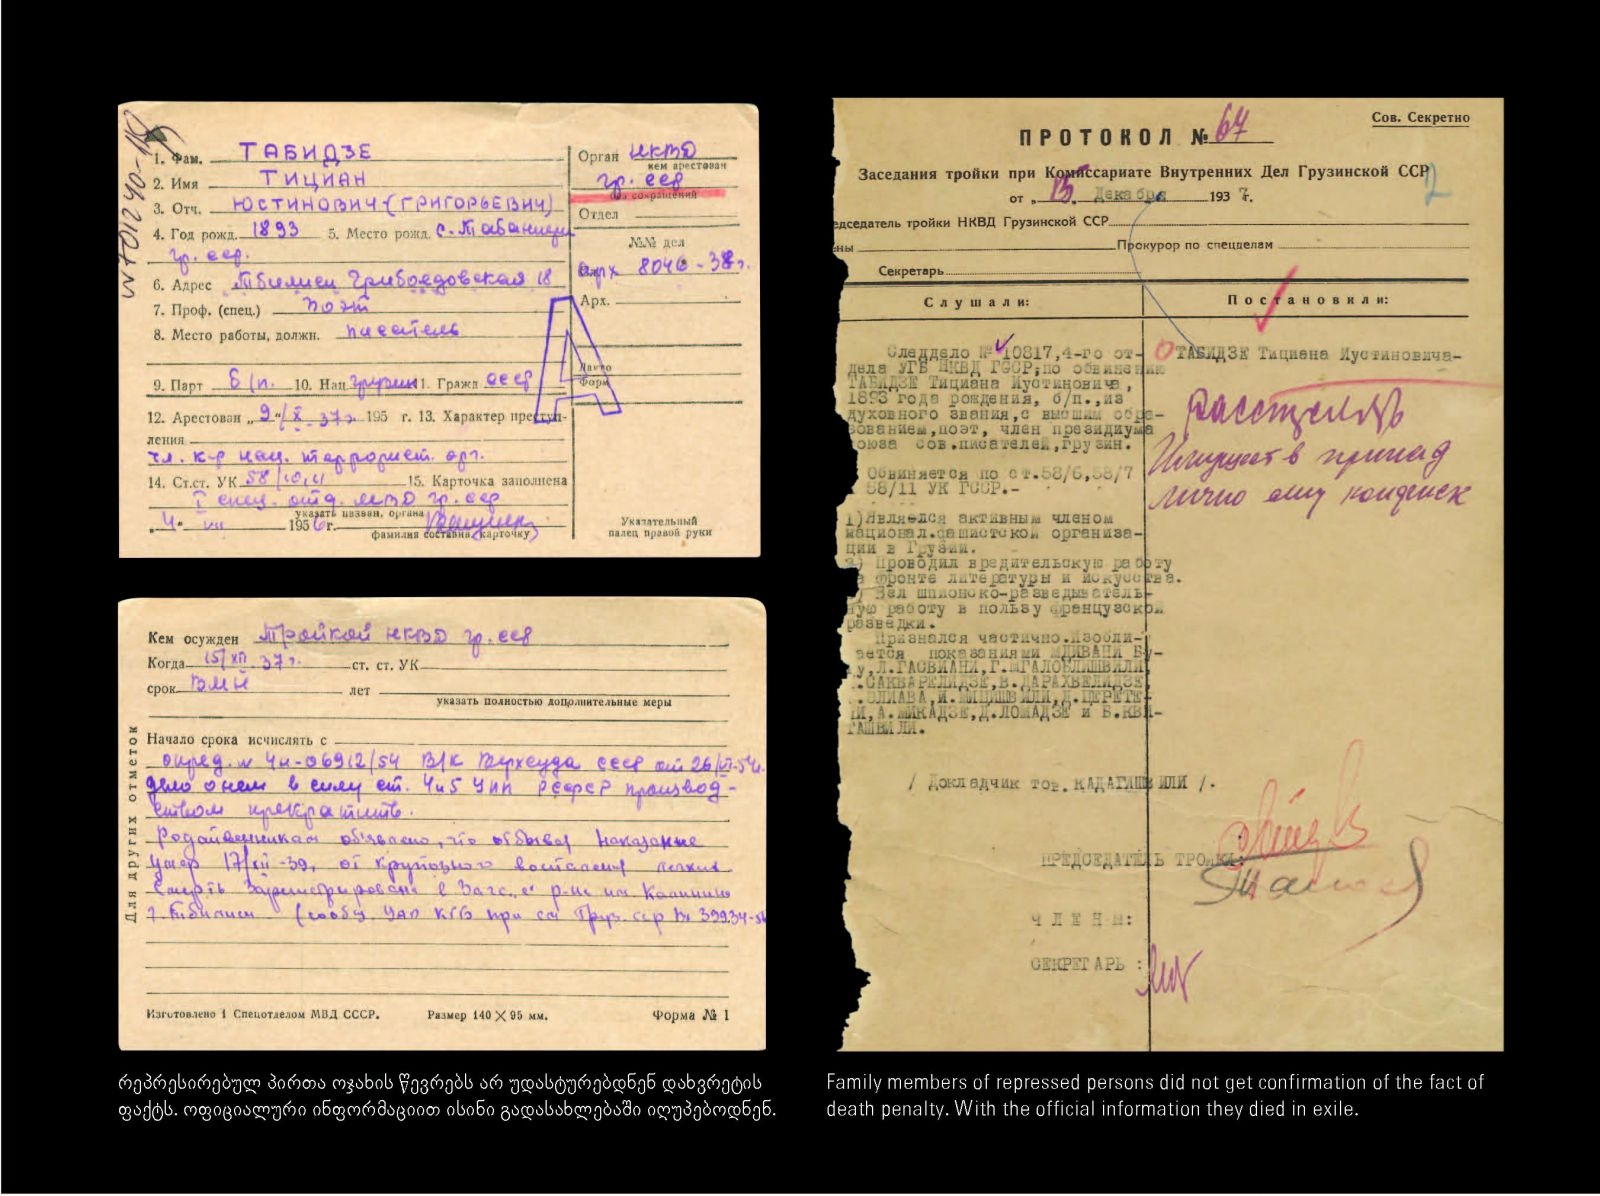 1. Фам. ТАБИДЗЕ
2. Имя ТИЦИАН
3. Отч. ЮСТИНОВИЧ (ГРИГОРЬЕВИЧ)
4. Год рожд. 1893 5. Место рожд. с.
гр. сср.
6. Адрес Тбилиси Грибоедовская 18
7. Проф. (спец.) поэт
8. Место работы, должн. писатель
9. Парт б/п. 10. Нац. грузин 11. Гражд СССР
12. Арестован „9“/X-37г. 195 г. 13. Характер преступ-
ления
чл. к-р нац. террорист. орг.
14. Ст.ст. УК 58/10,11 15. Карточка заполнена
I спец. отд. МВД гр. сср
указать назван. органа
„4“ VII 1956г.
фамилия составив. карточку)
Орган НКВД
кем арестован
гр. сср
без сокращений
Отдел
№№ дел
арх 8046-38г.
Арх.
Дакто
Форм
А
Указательный
палец правой руки
Кем осужден Тройкой НКВД гр. сср
Когда 15/XII 37г. ст. ст. УК
срок ВМН лет
указать полностью дополнительные меры
Начало срока исчислять с
опред. № 4н-06912/54 В/К Верхсуда СССР от 26/
дело о нем в силу ст. 4 и 5 УПК РСФСР производ-
ством прекратить.
Родственникам объявлено, что отбывая наказание
умер 17/ -39, от крупозного воспаления легких
Смерть Зарегистрирована в Загс. р-не им Калинина
г. Тбилиси (сообщ. УАО КГБ при см Груз. сср №
Для других отметок
Изготовлено 1 Спецотделом МВД СССР. Размер 140 × 95 мм. Форма № 1
Сов. Секретно
ПРОТОКОЛ № 67
2
Заседания тройки при Комиссариате Внутренних Дел Грузинской ССР
от „15 Декабря 1937 г.
едседатель тройки НКВД Грузинской ССР
ны Прокурор по спецделам
Секретарь
Слушали: Постановили:
Следдело № 10817,4-го от-
дела УГБ НКВД ГССР,по обвинению
ТАБИДЗЕ Тициана Иустиновича,
1893 года рождения, б/п.,из
духовного звания,с высшим обра-
зованием,поэт, член президиума
союза сов.писателей,грузин.
Обвиняется по ст.58/6,58/7
58/11 УК ГССР.-
1)Являелся активным членом
национал.фашистской организа-
ции в Грузии.
2) Проводил вредительскую работу
а фронте литературы и искусства.
) Вел шпионско-разведыватель-
ную работу в пользу французской
разведки.
Признался частично.Изобли-
ается показаниями МДИВАНИ Бу-
у,Л.ГАСВИАНИ,Г.МГАЛОБЛИШВИЛИ,
.САКВАРЕЛИДЗЕ,В.ДАРАХВЕЛИДЗЕ,
.ЭЛИАВА,И.МИЦИШВИЛИ,Д.ЦЕРЕТЕ-
И,А.МИКАДЗЕ,Д.ЛОМАДЗЕ и Б.КВИ-
ГАШВИЛИ.
/ Докладчик тов. КАДАГИШВИЛИ /.
ТАБИДЗЕ Тициана Иустиновича-
Расстрелять
Имуществ принад
лично ему конфиск
ПРЕДСЕДАТЕЛЬ ТРОЙКИ:
ЧЛЕНЫ:
СЕКРЕТАРЬ :
რეპრესირებულ პირთა ოჯახის წევრებს არ უდასტურებდნენ დახვრეტის
ფაქტს. ოფიციალური ინფორმაციით ისინი გადასახლებაში იღუპებოდნენ.
Family members of repressed persons did not get confirmation of the fact of
death penalty. With the official information they died in exile.